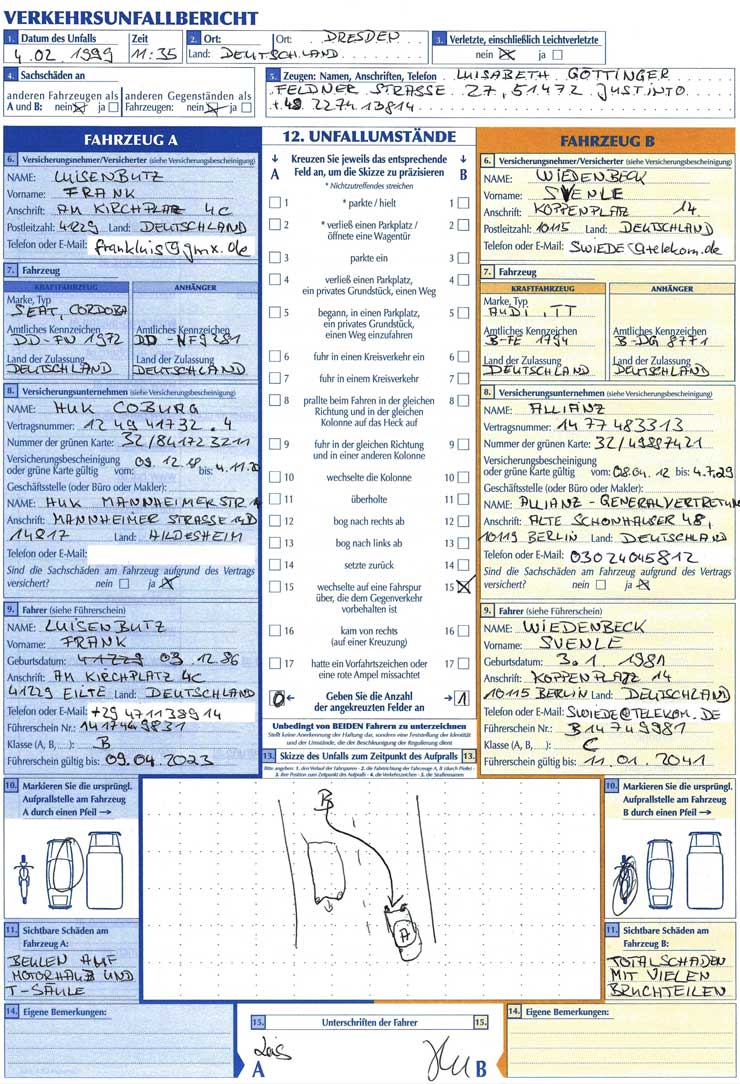 VERKEHRSUNFALLBERICHT
1. Datum des Unfalls Zeit
4.02.1999 11:35
2. Ort: Ort: DRESDEN
Land: DEUTSCHLAND
3. Verletzte, einschließlich Leichtverletzte
nein ja
4. Sachschäden an
anderen Fahrzeugen als A und B: nein ja
anderen Gegenständen als Fahrzeugen: nein ja
5. Zeugen: Namen, Anschriften, Telefon LUISABETH GÖTTINGER
FELDNER STRASSE 27, 51472 JUSTINTO
+49 227413814
FAHRZEUG A
6. Versicherungsnehmer/Versicherter (siehe Versicherungsbescheinigung)
NAME: LUISENBUTZ
Vorname: FRANK
Anschrift: AM KIRCHPLATZ 4C
Postleitzahl: 41229 Land: DEUTSCHLAND
Telefon oder E-Mail: frankluis@gmx.de
7. Fahrzeug
KRAFTFAHRZEUG ANHÄNGER
Marke, Typ
SEAT, CORDOBA
Amtliches Kennzeichen Amtliches Kennzeichen
DD-FN 1972 DD-NF9381
Land der Zulassung Land der Zulassung
DEUTSCHLAND DEUTSCHLAND
8. Versicherungsunternehmen (siehe Versicherungsbescheinigung)
NAME: HUK COBURG
Vertragsnummer: 12 49 41732.4
Nummer der grünen Karte: 32/841723211
Versicherungsbescheinigung
oder grüne Karte gültig vom: 09.12.18 bis: 4.11.20
Geschäftsstelle (oder Büro oder Makler):
NAME: HUK MANNHEIMERSTR
Anschrift: MANNHEIMER STRASSE 14D
14817 Land: HILDESHEIM
Telefon oder E-Mail:
Sind die Sachschäden am Fahrzeug aufgrund des Vertrags
versichert? nein ja
9. Fahrer (siehe Führerschein)
NAME: LUISENBUTZ
Vorname: FRANK
Geburtsdatum: 41229 03.12.86
Anschrift: AM KIRCHPLATZ 4C
41229 EILTE Land: DEUTSCHLAND
Telefon oder E-Mail: +29 471138914
Führerschein Nr.: 1417469831
Klasse (A, B,....): B
Führerschein gültig bis: 09.04.2023
10. Markieren Sie die ursprüngl.
Aufprallstelle am Fahrzeug
A durch einen Pfeil →
11. Sichtbare Schäden am
Fahrzeug A:
BEULEN AUF
MOTORHAUB UND
T-SÄULE
14. Eigene Bemerkungen:
12. UNFALLUMSTÄNDE
↓ A Kreuzen Sie jeweils das entsprechende Feld an, um die Skizze zu präzisieren ↓ B
* Nichtzutreffendes streichen
1 * parkte / hielt 1
2 * verließ einen Parkplatz / 2
öffnete eine Wagentür
3 parkte ein 3
4 verließ einen Parkplatz, 4
ein privates Grundstück, einen Weg
5 begann, in einen Parkplatz, 5
ein privates Grundstück,
einen Weg einzufahren
6 fuhr in einen Kreisverkehr ein 6
7 fuhr in einem Kreisverkehr 7
8 prallte beim Fahren in der gleichen 8
Richtung und in der gleichen
Kolonne auf das Heck auf
9 fuhr in der gleichen Richtung 9
und in einer anderen Kolonne
10 wechselte die Kolonne 10
11 überholte 11
12 bog nach rechts ab 12
13 bog nach links ab 13
14 setzte zurück 14
15 wechselte auf eine Fahrspur 15
über, die dem Gegenverkehr
vorbehalten ist
16 kam von rechts 16
(auf einer Kreuzung)
17 hatte ein Vorfahrtszeichen oder 17
eine rote Ampel missachtet
0 ← Geben Sie die Anzahl → 1
der angekreuzten Felder an
Unbedingt von BEIDEN Fahrern zu unterzeichnen
Stellt keine Anerkennung der Haftung dar, sondern eine Feststellung der Identität
und der Umstände, die der Beschleunigung der Regulierung dient
13. Skizze des Unfalls zum Zeitpunkt des Aufpralls 13.
Bitte angeben: 1. den Verlauf der Fahrspuren - 2. die Fahrtrichtung der Fahrzeuge A, B (durch Pfeile) -
3. ihre Position zum Zeitpunkt des Aufpralls - 4. die Verkehrszeichen - 5. die Straßennamen
B
A
15. Unterschriften der Fahrer 15.
A B
FAHRZEUG B
6. Versicherungsnehmer/Versicherter (siehe Versicherungsbescheinigung)
NAME: WIEDENBECK
Vorname: SVENLE
Anschrift: KOPPENPLATZ 14.
Postleitzahl: 10115 Land: DEUTSCHLAND
Telefon oder E-Mail: SWIEDE@telekom.de
7. Fahrzeug
KRAFTFAHRZEUG ANHÄNGER
Marke, Typ
AUDI, TT
Amtliches Kennzeichen Amtliches Kennzeichen
B-FE 1794 B-DG 8771
Land der Zulassung Land der Zulassung
DEUTSCHLAND DEUTSCHLAND
8. Versicherungsunternehmen (siehe Versicherungsbescheinigung)
NAME: ALLIANZ
Vertragsnummer: 14 77 483313
Nummer der grünen Karte: 32/49887421
Versicherungsbescheinigung
oder grüne Karte gültig vom: 08.04.12 bis: 4.7.29
Geschäftsstelle (oder Büro oder Makler):
NAME: ALLIANZ - GENERALVERTRETUN
Anschrift: ALTE SCHONHAUSER 48,
10119 BERLIN Land: DEUTSCHLAND
Telefon oder E-Mail: 03024045812
Sind die Sachschäden am Fahrzeug aufgrund des Vertrags
versichert? nein ja
9. Fahrer (siehe Führerschein)
NAME: WIEDENBECK
Vorname: SVENLE
Geburtsdatum: 3.1.1981
Anschrift: KOPPENPLATZ 14
10115 BERLIN Land: DEUTSCHLAND
Telefon oder E-Mail: SWIEDE@TELEKOM.DE
Führerschein Nr.: B14749981
Klasse (A, B,....): C
Führerschein gültig bis: 11.01.2041
10. Markieren Sie die ursprüngl.
Aufprallstelle am Fahrzeug
B durch einen Pfeil →
11. Sichtbare Schäden am
Fahrzeug B:
TOTALSCHADEN
MIT VIELEN
BRUCHTEILEN
14. Eigene Bemerkungen: